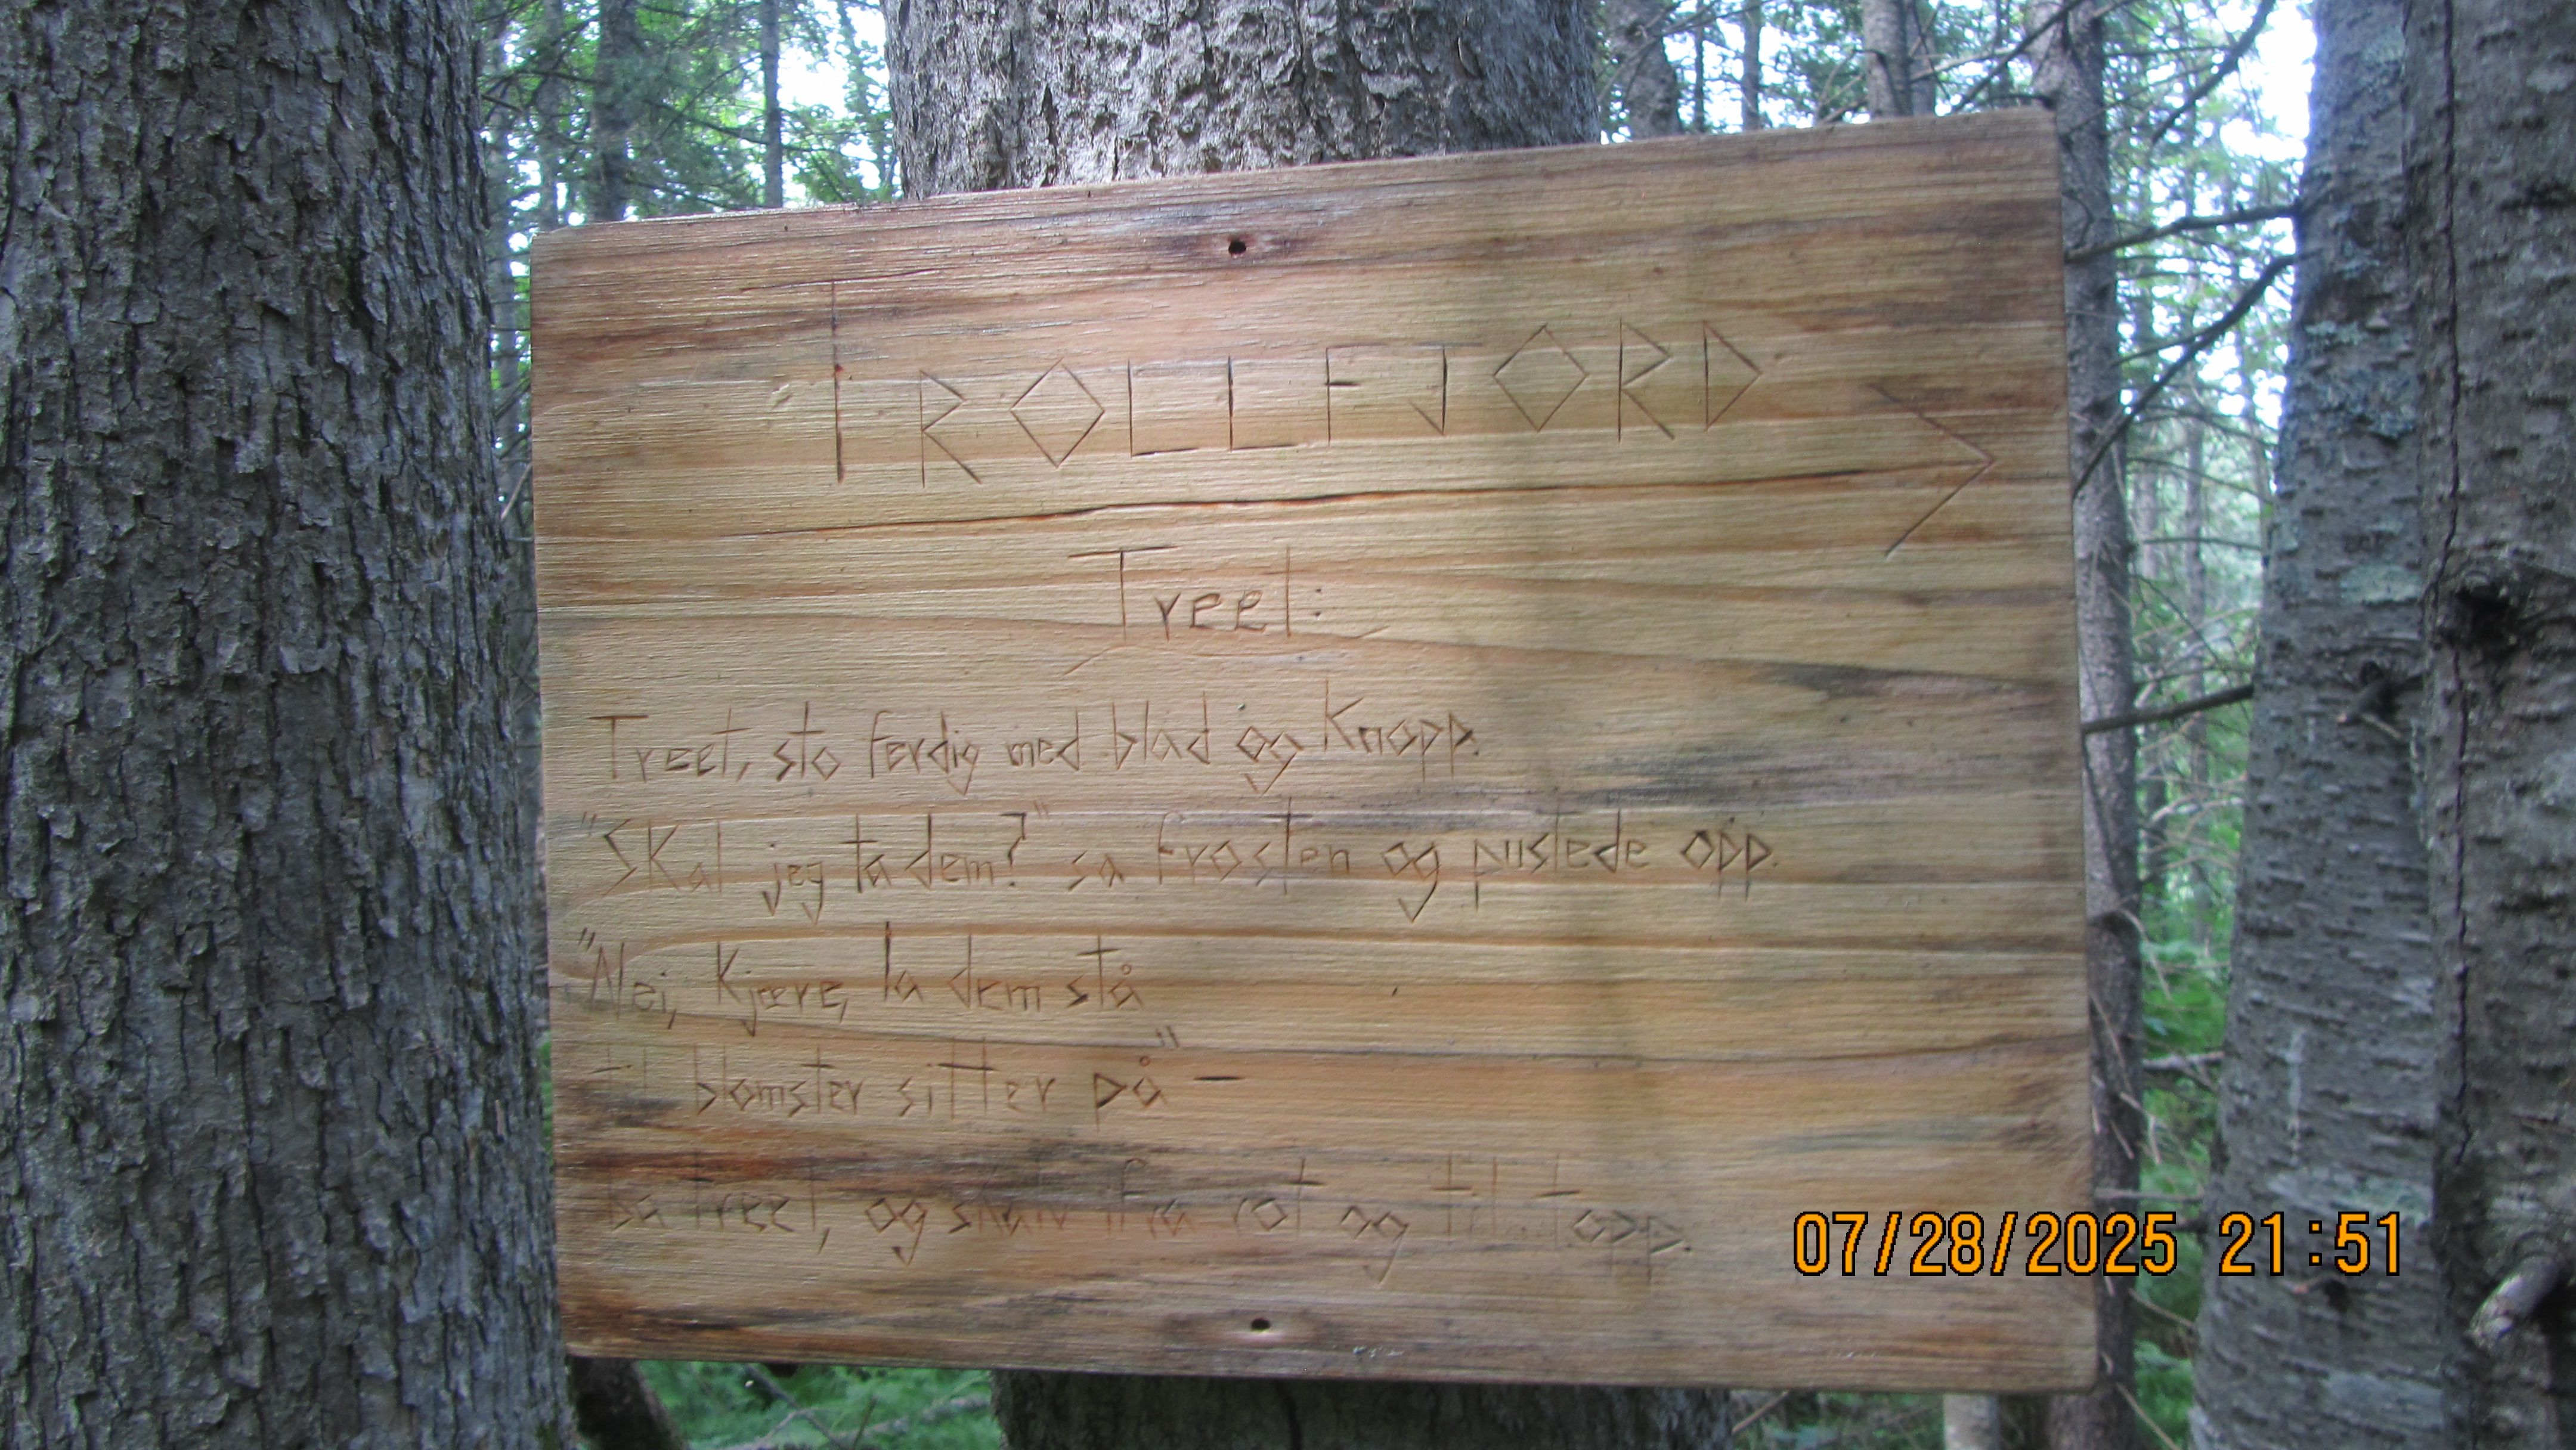 TROLLFJORD >
Treet:
Treet, sto ferdig med blad og Knopp.
"Skal jeg ta dem?" sa frosten og pustede opp.
"Nei, Kjære, la dem stå
til blomster sitter på" –
ba treet, og skalv ifra rot og til topp.
07/28/2025 21:51